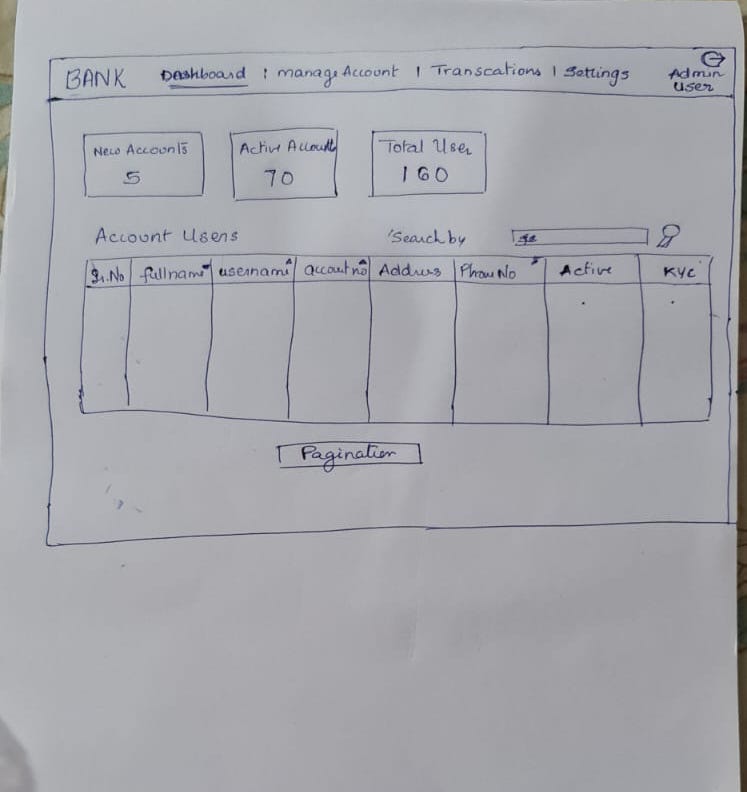 BANK Dashboard | manage Account | Transcations | Settings Admin User
New Accounts
5
Active Account
70
Total User
160
Account Users Search by
Sr.No fullname username account no Address Phone No Active KYC
Pagination